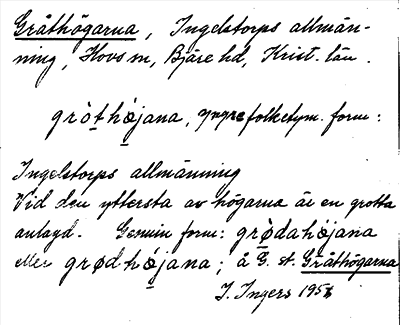 Gråthögarna, Ingelstorps allmän-
ning, Hovs sn, Bjäre hd, Krist. län.
gròt̲hø̲jana, yngre folketym. form:
Ingelstorps allmänning
Vid den yttersta av högarna är en grotta
anlagd. Genuin form: grø̀dahø̲jana
eller grødhø̲jana; å G. st. Gråthögarna
I. Ingers 195